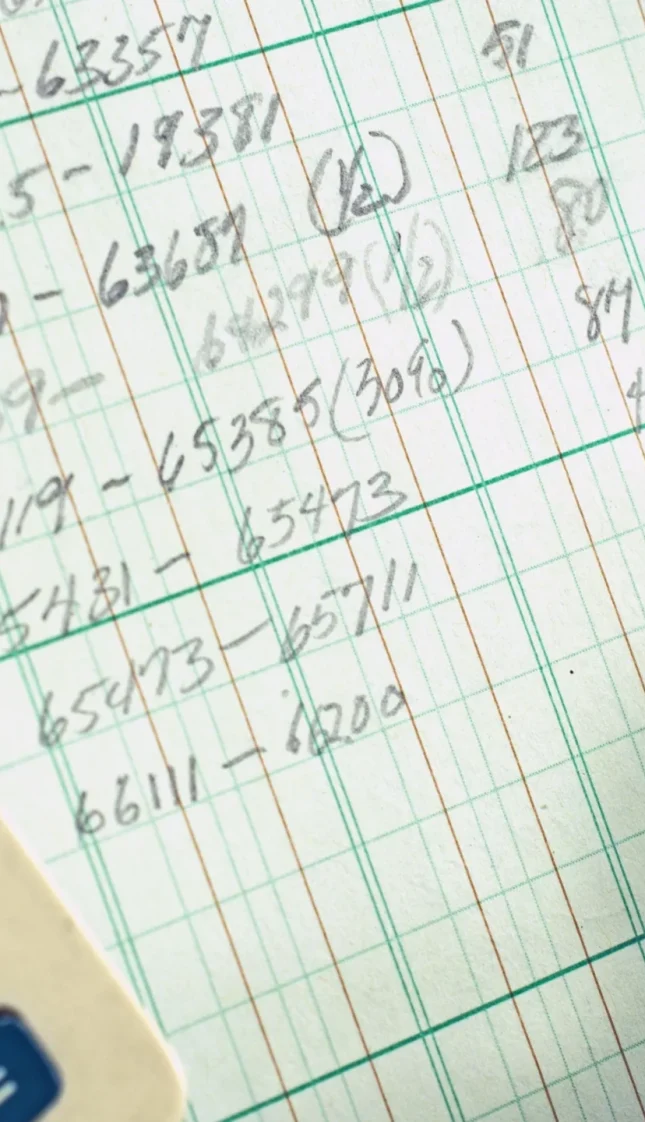 - 63357 51
.5 - 19381 123
- 63687 (1/2) 80
9 - 64299 (1/2) 84
119 - 65385 (30%) 4
5431 - 65473
65473 - 65711
66111 - 66200